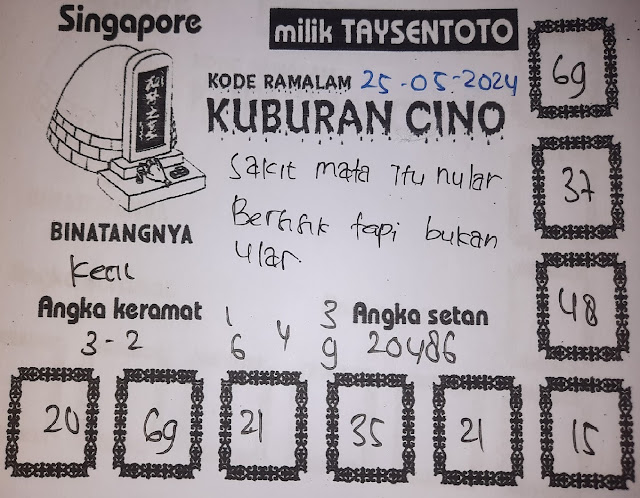 Singapore
milik TAYSENTOTO
KODE RAMALAM 25-05-2024
KUBURAN CINO
69
Sakit mata itu nular
37
Bersisik tapi bukan
ular.
BINATANGNYA
Kecil
48
Angka keramat
3-2
1 3
6 4 9
Angka setan
20486
20 69 21 35 21 15